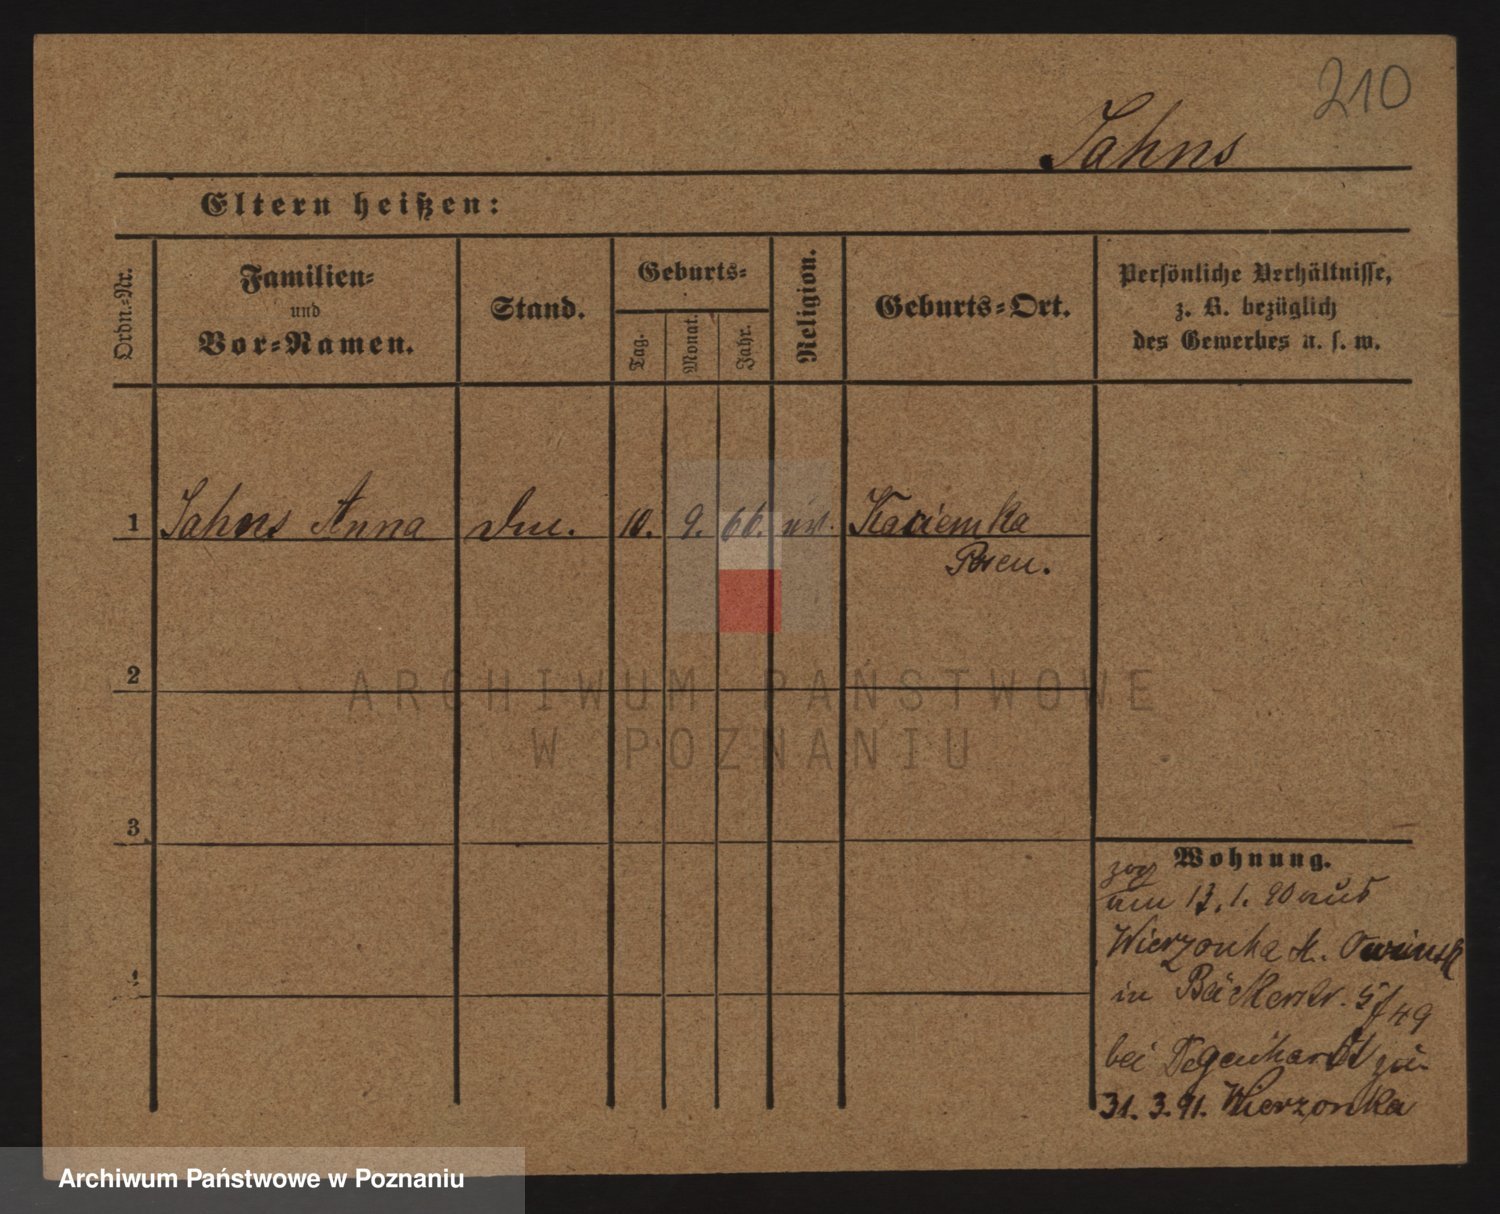 210
Jahns
Eltern heißen:
Ordn.-Nr.
Familien-
und
Vor-Namen.
Stand.
Geburts-
Tag.
Monat.
Jahr.
Religion.
Geburts-Ort.
Persönliche Verhältnisse,
z. B. bezüglich
des Gewerbes u. s. w.
1 Jahns Anna 10. 9. 66.
Posen.
2
3
4
Wohnung.
zog
am 13. 1. 90 aus
Wierzonka
in Bäckerstr. 49
bei Degenhardt
31. 3. 91. Wierzonka
ARCHIWUM PAŃSTWOWE
W POZNANIU
Archiwum Państwowe w Poznaniu